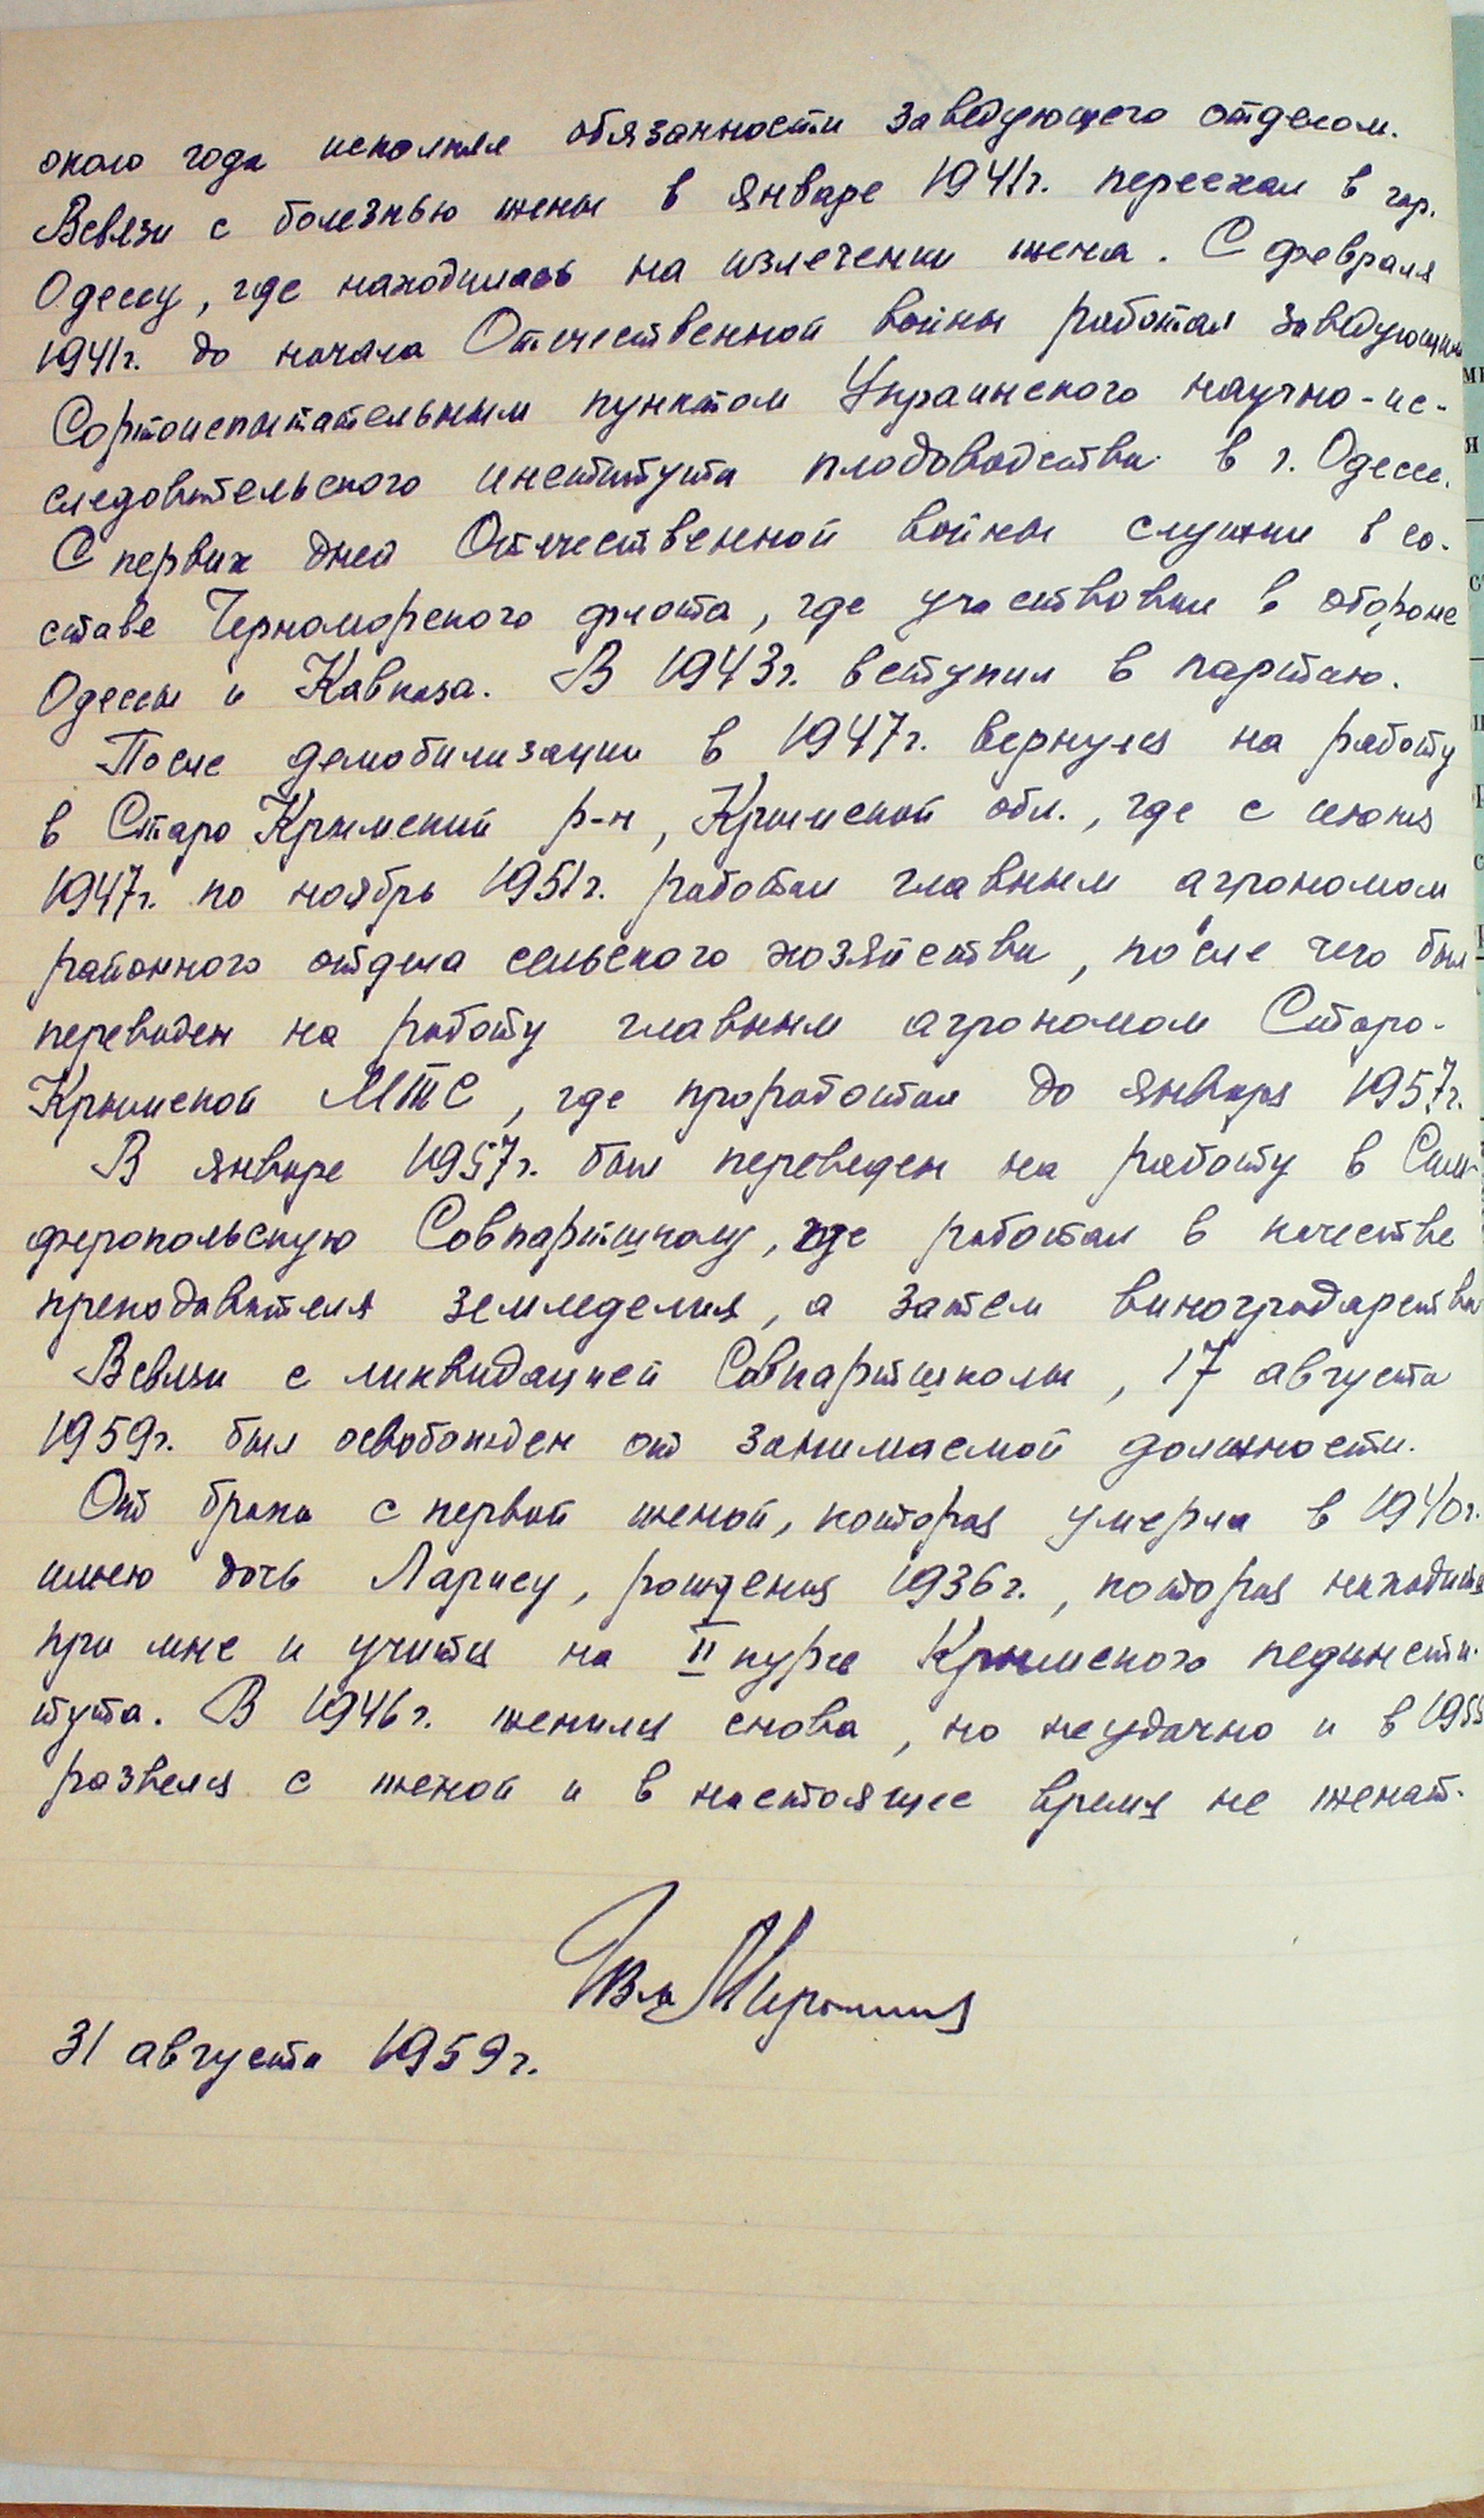 около года исполнял обязанности заведующего отделом.
Всвязи с болезнью жены в январе 1941г. переехал в гор.
Одессу, где находилась на излечении жена. С февраля
1941г. до начала Отечественной войны работал заведующим
Сортоиспытательным пунктом Украинского научно-ис-
следовательского института плодоводства в г. Одессе.
С первых дней Отечественной войны служил в со-
ставе Черноморского флота, где участвовал в обороне
Одессы и Кавказа. В 1943г. вступил в партию.
После демобилизации в 1947г. вернулся на работу
в Старо Крымский р-н, Крымской обл., где с июня
1947г. по ноябрь 1951г. работал главным агрономом
районного отдела сельского хозяйства, после чего был
переведен на работу главным агрономом Старо-
Крымской МТС, где проработал до января 1957г.
В январе 1957г. был переведен на работу в Сим-
феропольскую Совпартшколу, где работал в качестве
преподавателя земледелия, а затем виноградарства
Всвязи с ликвидацией Совпартшколы, 17 августа
1959г. был освобожден от занимаемой должности.
От брака с первой женой, которая умерла в 1940г.
имею дочь Ларису, рождения 1936г., которая находится
при мне и учится на II курсе Крымского пединсти-
тута. В 1946г. женился снова, но неудачно и в 1955
развелся с женой и в настоящее время не женат.
31 августа 1959г.